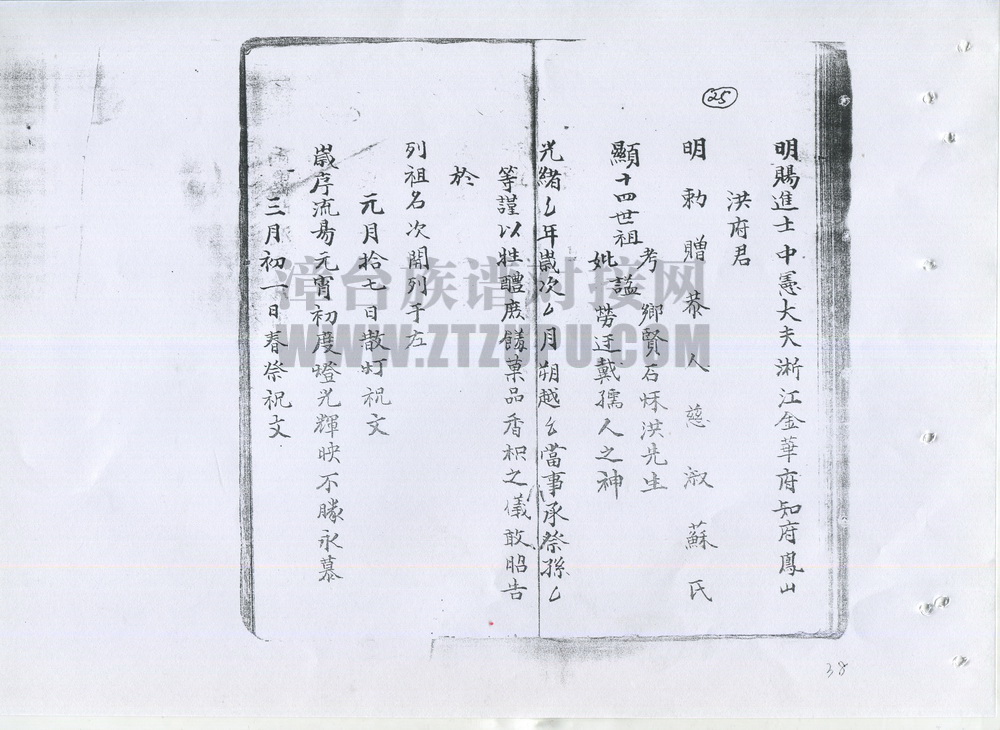 25
明賜進士中憲大夫浙江金華府知府鳳山
洪府君
明勅贈恭人慈淑蘇氏
顯十四世祖
考鄉賢石恘洪先生
妣諡勞迋戴孺人之神
光緒厶年嵗次厶月朔越厶當事承祭孫厶
等謹以牲醴庶饈菓品香枳之儀敢昭告
於
列祖名次開列于左
元月拾七日散灯祝文
嵗序流易元宵初度燈光輝映不勝永慕
三月初一日春祭祝文
漳台族谱对接网
WWW.ZTZUPU.COM
38